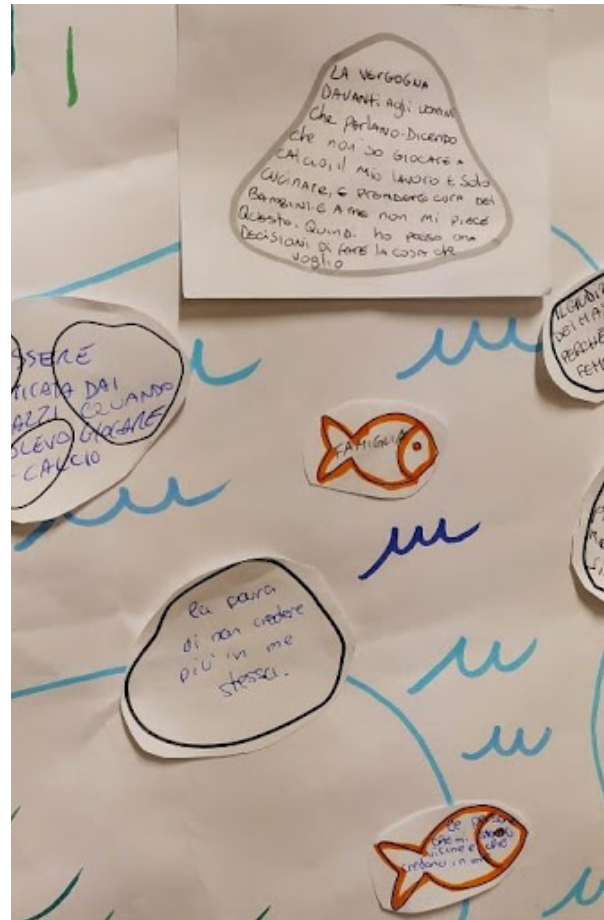 LA VERGOGNA
DAVANTI Agli UOMINI
Che PARLANO-DICENDO
che non so GIOCARE A
CALCIO, il MIO LAVORO È SOLO
CUCINARE, E PRENDERE CURA DEI
BAMBINI E A ME NON MI PIECE
QUESTO. QUINDI ho PRESO UNA
DECISIONI DI FARE LA COSA che
voglio
SSERE
TICATA DAI
AZZI QUANDO
OLEVO GIOCARE
CALCIO
FAMIGLIA
IL GIUDIZ
DEI MA
PERCHÈ
FEMM
la paura
di non credere
più in me
stessa.
le persone
che mi
vicine e che
credono in me